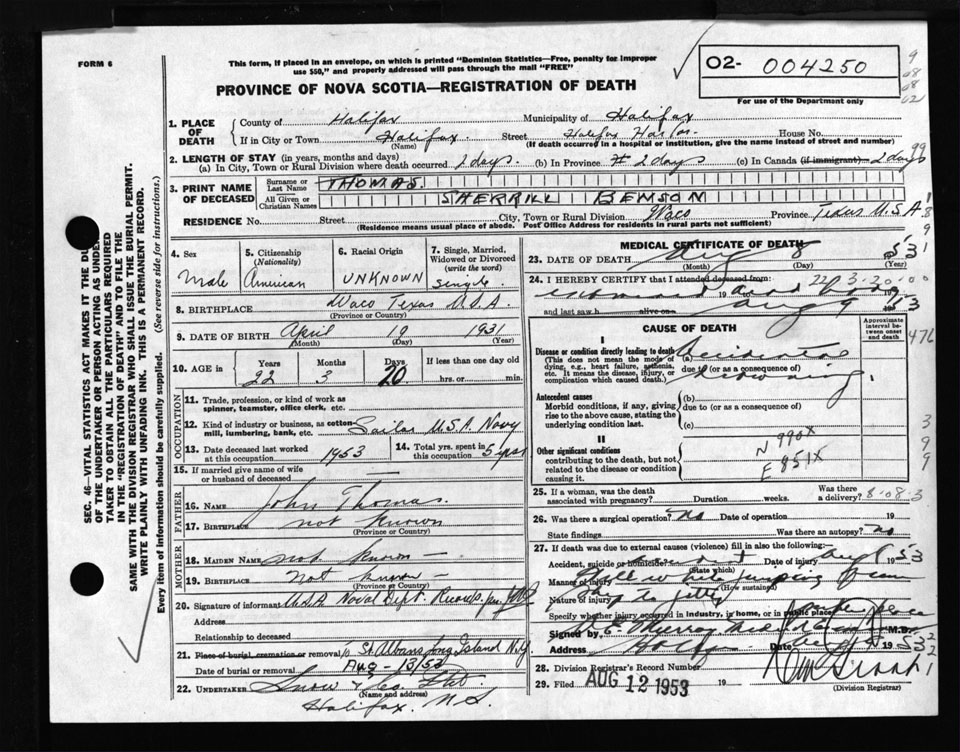 FORM 6
This form, if placed in an envelope, on which is printed "Dominion Statistics—Free, penalty for improper
use $50," and properly addressed will pass through the mail "FREE"
O2- 004250
For use of the Department only
PROVINCE OF NOVA SCOTIA—REGISTRATION OF DEATH
1. PLACE OF DEATH
County of Halifax Municipality of Halifax
If in City or Town Halifax. Street Halifax House No.
(Name) (If death occurred in a hospital or institution, give the name instead of street and number)
2. LENGTH OF STAY (in years, months and days)
(a) In City, Town or Rural Division where death occurred 2 days. (b) In Province 2 days (c) In Canada (if immigrant) 2 days
3. PRINT NAME OF DECEASED
Surname or Last Name THOMAS.
All Given or Christian Names SHERRILL BENSON
RESIDENCE No. Street City, Town or Rural Division Waco Province Texas U.S.A
(Residence means usual place of abode. Post Office Address for residents in rural parts not sufficient)
4. Sex
Male
5. Citizenship (Nationality)
American
6. Racial Origin
UNKNOWN
7. Single, Married, Widowed or Divorced (write the word)
Single
8. BIRTHPLACE Waco Texas U.S.A.
(Province or Country)
9. DATE OF BIRTH April 19 1931
(Month) (Day) (Year)
10. AGE in Years Months Days If less than one day old
22 3 20 hrs. or min.
OCCUPATION
11. Trade, profession, or kind of work as
spinner, teamster, office clerk, etc.
12. Kind of industry or business, as cotton
mill, lumbering, bank, etc. Sailor U.S.A. Navy
13. Date deceased last worked
at this occupation 1953
14. Total yrs. spent in
this occupation 5 yrs
15. If married give name of wife
or husband of deceased
FATHER
16. NAME John Thomas
17. BIRTHPLACE not Known
(Province or Country)
MOTHER
18. MAIDEN NAME not known —
19. BIRTHPLACE Not known —
(Province or Country)
20. Signature of informant U.S.A Naval Dept. Records
Address
Relationship to deceased
21. Place of burial, cremation or removal St. Albans Long Island N.Y
Date of burial or removal Aug - 13/53
22. UNDERTAKER Snow & Co. Ltd.
(Name and address)
Halifax. N.S.
MEDICAL CERTIFICATE OF DEATH
23. DATE OF DEATH Aug 8 53
(Month) (Day) (Year)
24. I HEREBY CERTIFY that I attended deceased from:
19
and last saw h alive on Aug 9 1953
CAUSE OF DEATH
Approximate interval between onset and death
I
Disease or condition directly leading to death
(This does not mean the mode of
dying, e.g., heart failure, asthenia,
etc. It means the disease, injury, or
complication which caused death.)
(a) Accidental
due to (or as a consequence of)
drowning
Antecedent causes
Morbid conditions, if any, giving
rise to the above cause, stating the
underlying condition last.
(b)
due to (or as a consequence of)
(c)
II
Other significant conditions
contributing to the death, but not
related to the disease or condition
causing it.
N 990X
E 851X
25. If a woman, was the death
associated with pregnancy? Duration weeks. Was there a delivery?
26. Was there a surgical operation? no Date of operation 19
State findings Was there an autopsy? no
27. If death was due to external causes (violence) fill in also the following:
Accident, suicide or homicide? Date of injury Aug 8 1953
(State which)
Manner of injury Fell while jumping from
(How sustained)
Nature of injury ship to jetty
Specify whether injury occurred in industry, in home, or in public place
Signed by Murray M.D.
Address Halifax Date 19 53
28. Division Registrar's Record Number
29. Filed AUG 12 1953 19
(Division Registrar)
SEC. 46—VITAL STATISTICS ACT MAKES IT THE DUTY
OF THE UNDERTAKER OR PERSON ACTING AS UNDERTAKER
TO OBTAIN ALL THE PARTICULARS REQUIRED
IN THE "REGISTRATION OF DEATH" AND TO FILE THE
SAME WITH THE DIVISION REGISTRAR WHO SHALL ISSUE THE BURIAL PERMIT.
WRITE PLAINLY WITH UNFADING INK. THIS IS A PERMANENT RECORD.
Every item of information should be carefully supplied. (See reverse side for instructions.)